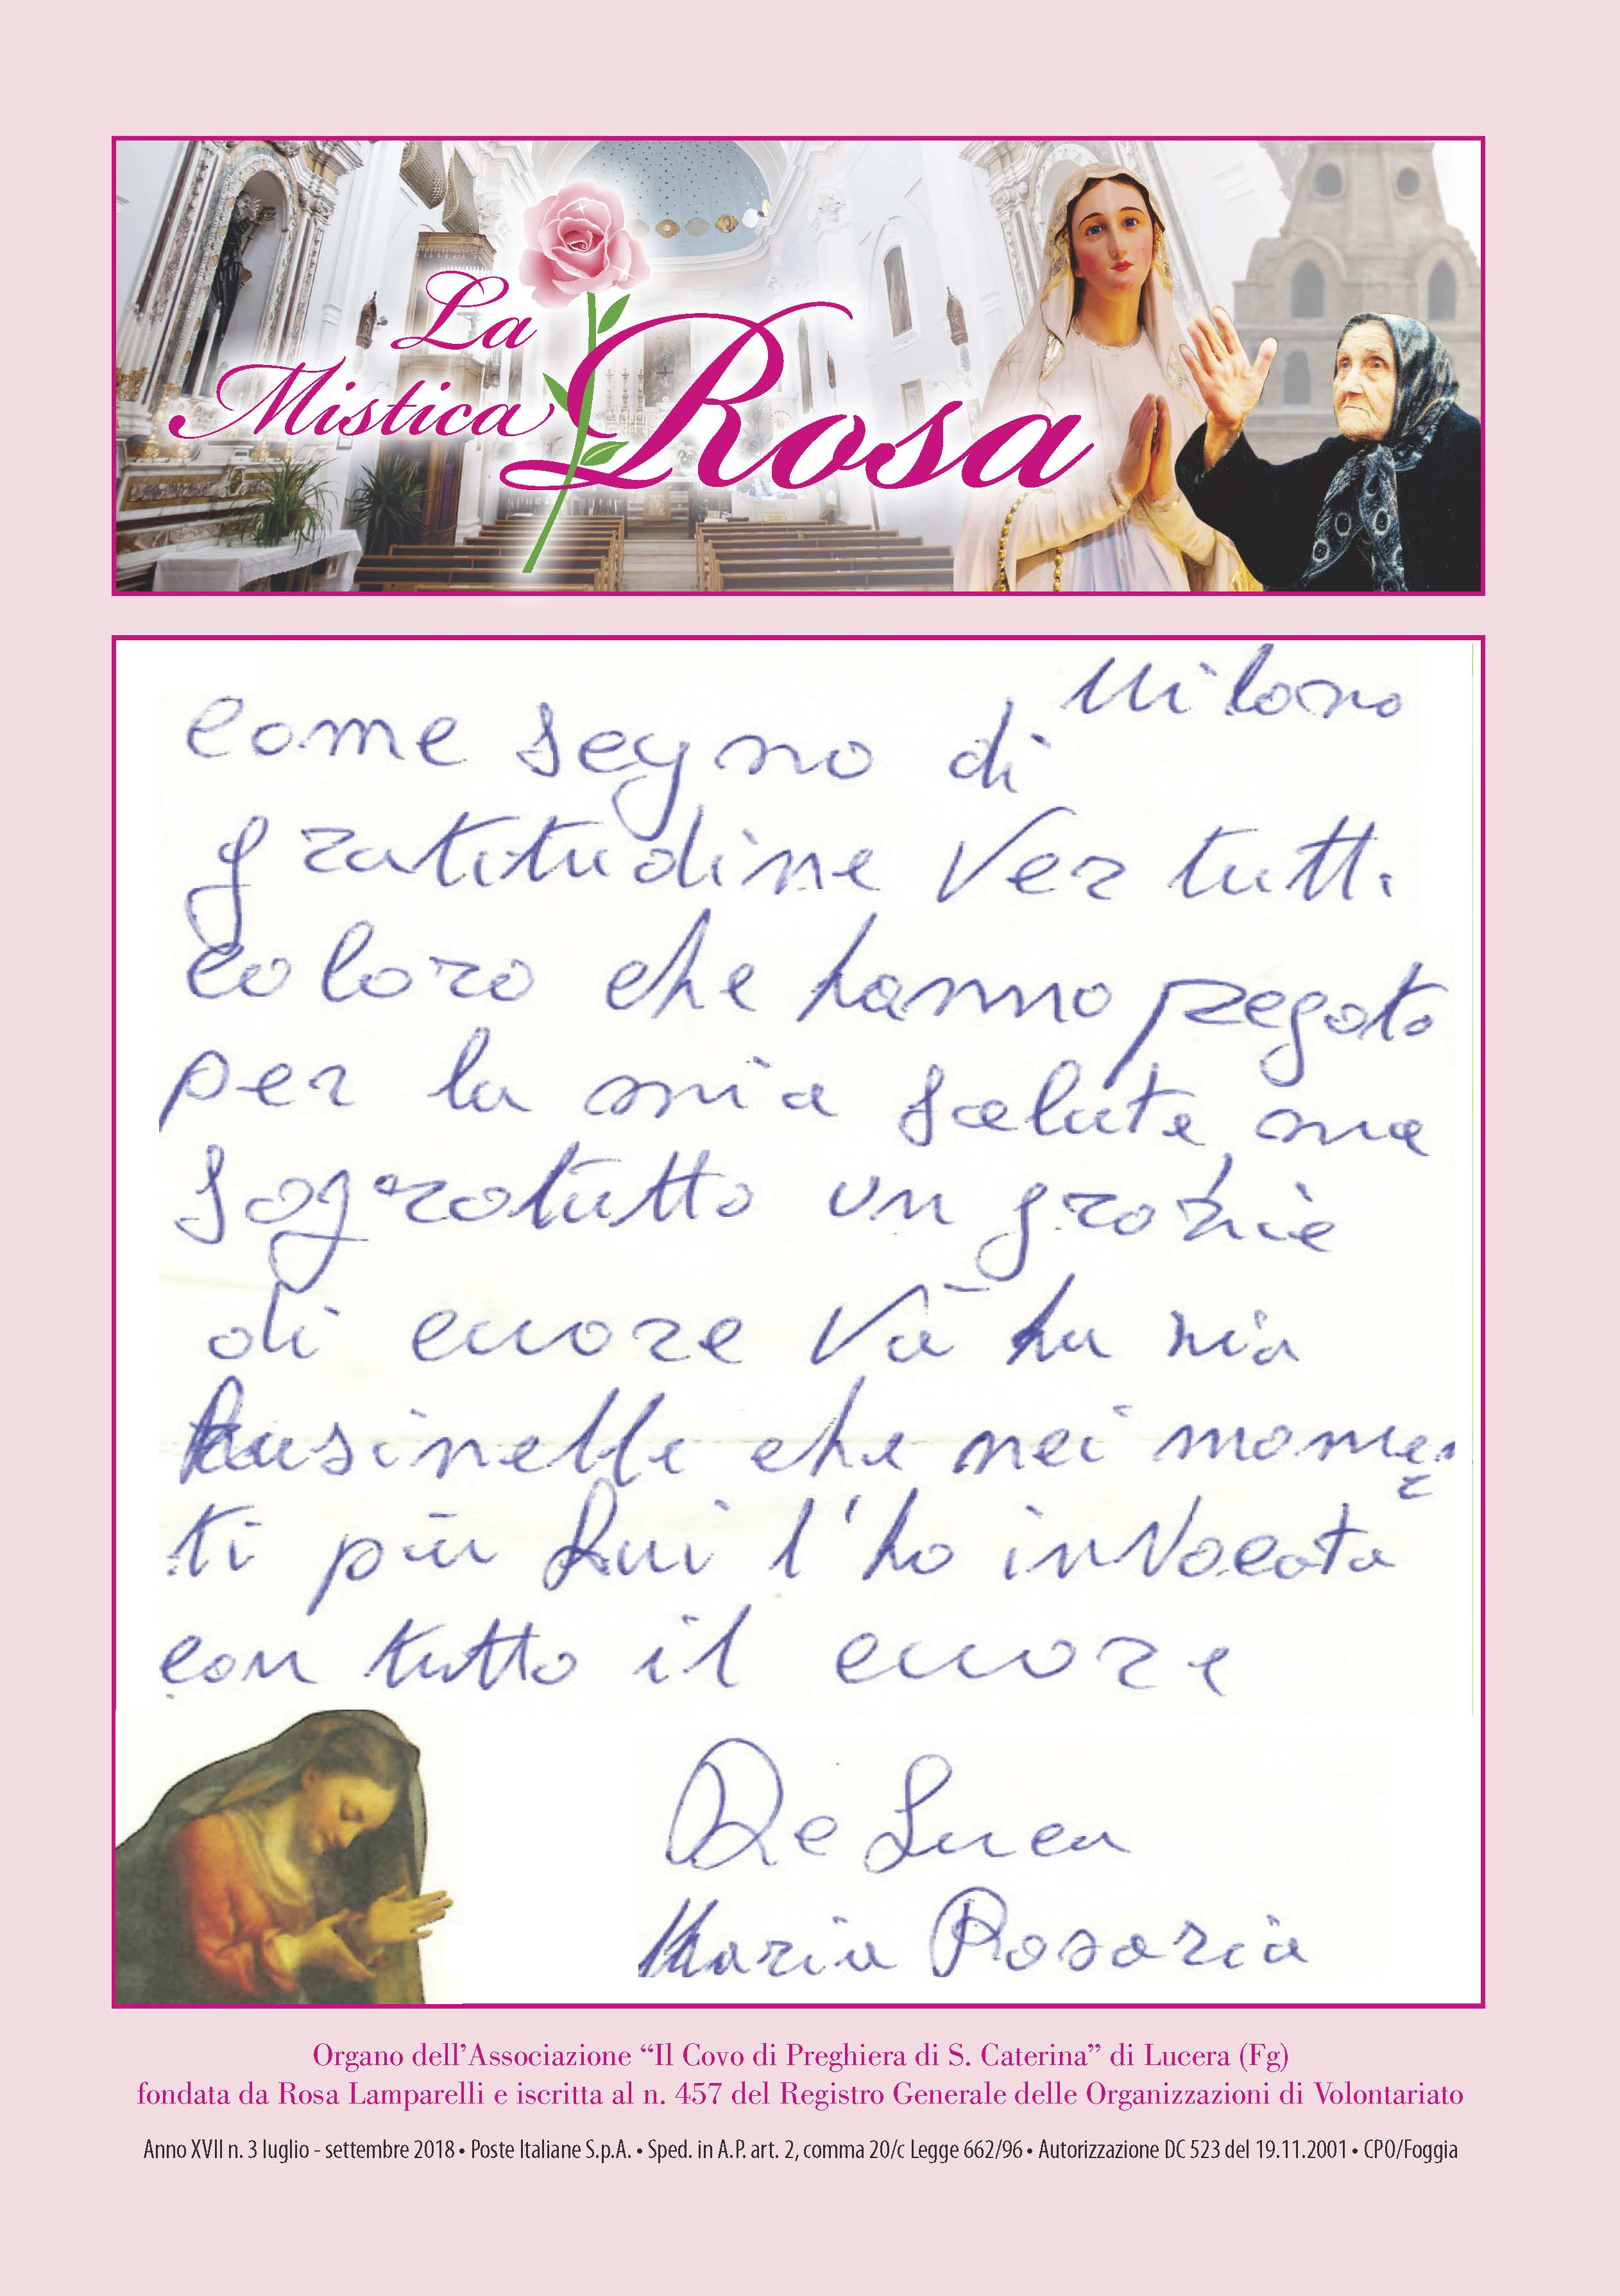 La
Mistica Rosa
Milano
Come segno di
gratitudine Ver tutti
coloro che hanno pregato
per la mia salute, ma
sopratutto un grazie
di cuore Và ha zia
che nei momen
ti più bui l'ho inVocata
con tutto il cuore
De Luca
Maria Rosaria
Organo dell'Associazione “Il Covo di Preghiera di S. Caterina” di Lucera (Fg)
fondata da Rosa Lamparelli e iscritta al n. 457 del Registro Generale delle Organizzazioni di Volontariato
Anno XVII n. 3 luglio - settembre 2018 • Poste Italiane S.p.A. • Sped. in A.P. art. 2, comma 20/c Legge 662/96 • Autorizzazione DC 523 del 19.11.2001 • CPO/Foggia